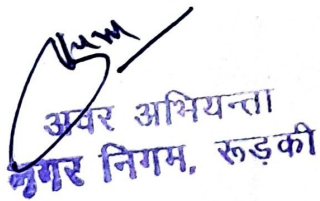 अवर अभियन्ता
नगर निगम, रूड़की